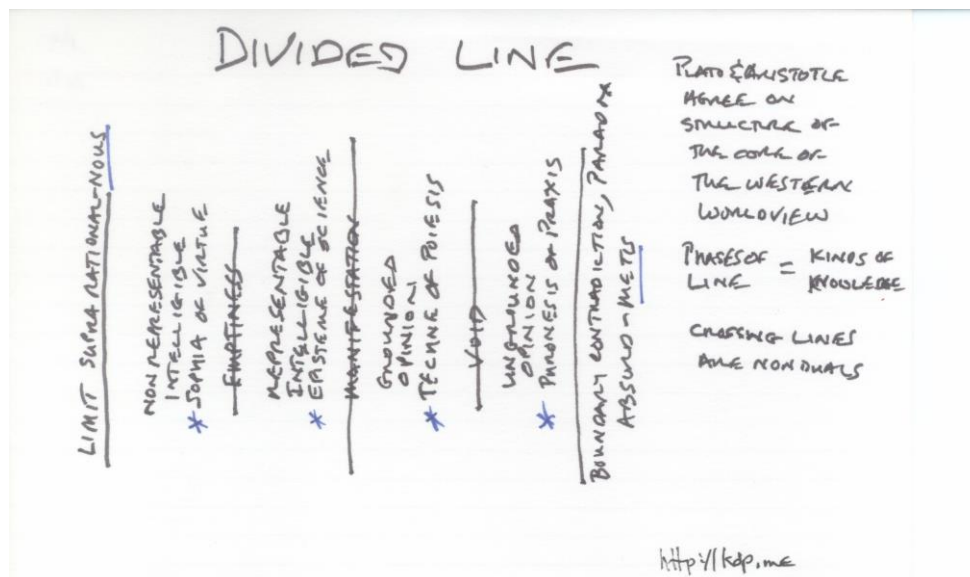 DIVIDED LINE
LIMIT SUPRA RATIONAL-NOUS
NON REPRESENTABLE
INTELLIGIBLE
* SOPHIA OF VIRTUE
EMPTINESS
REPRESENTABLE
INTELLIGIBLE
* EPISTEME OF SCIENCE
MANIFESTATION
GROUNDED
OPINION
* TECHNE OF POIESIS
VOID
UNGROUNDED
OPINION
* PHRONESIS OF PRAXIS
BOUNDARY CONTRADICTION, PARADOX
ABSURD-METIS
PLATO & ARISTOTLE
AGREE ON
STRUCTURE OF
THE CORE OF
THE WESTERN
WORLDVIEW
PHASES OF LINE = KINDS OF KNOWLEDGE
CROSSING LINES
ARE NONDUALS
http://kdp.me